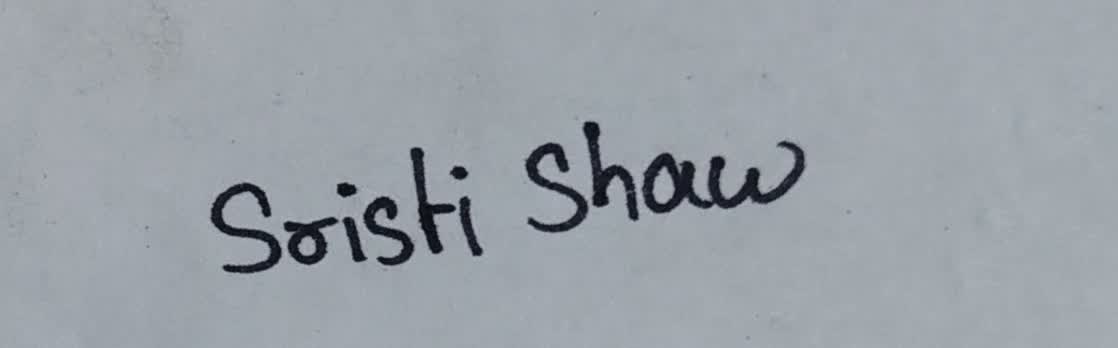 Sristi Shaw